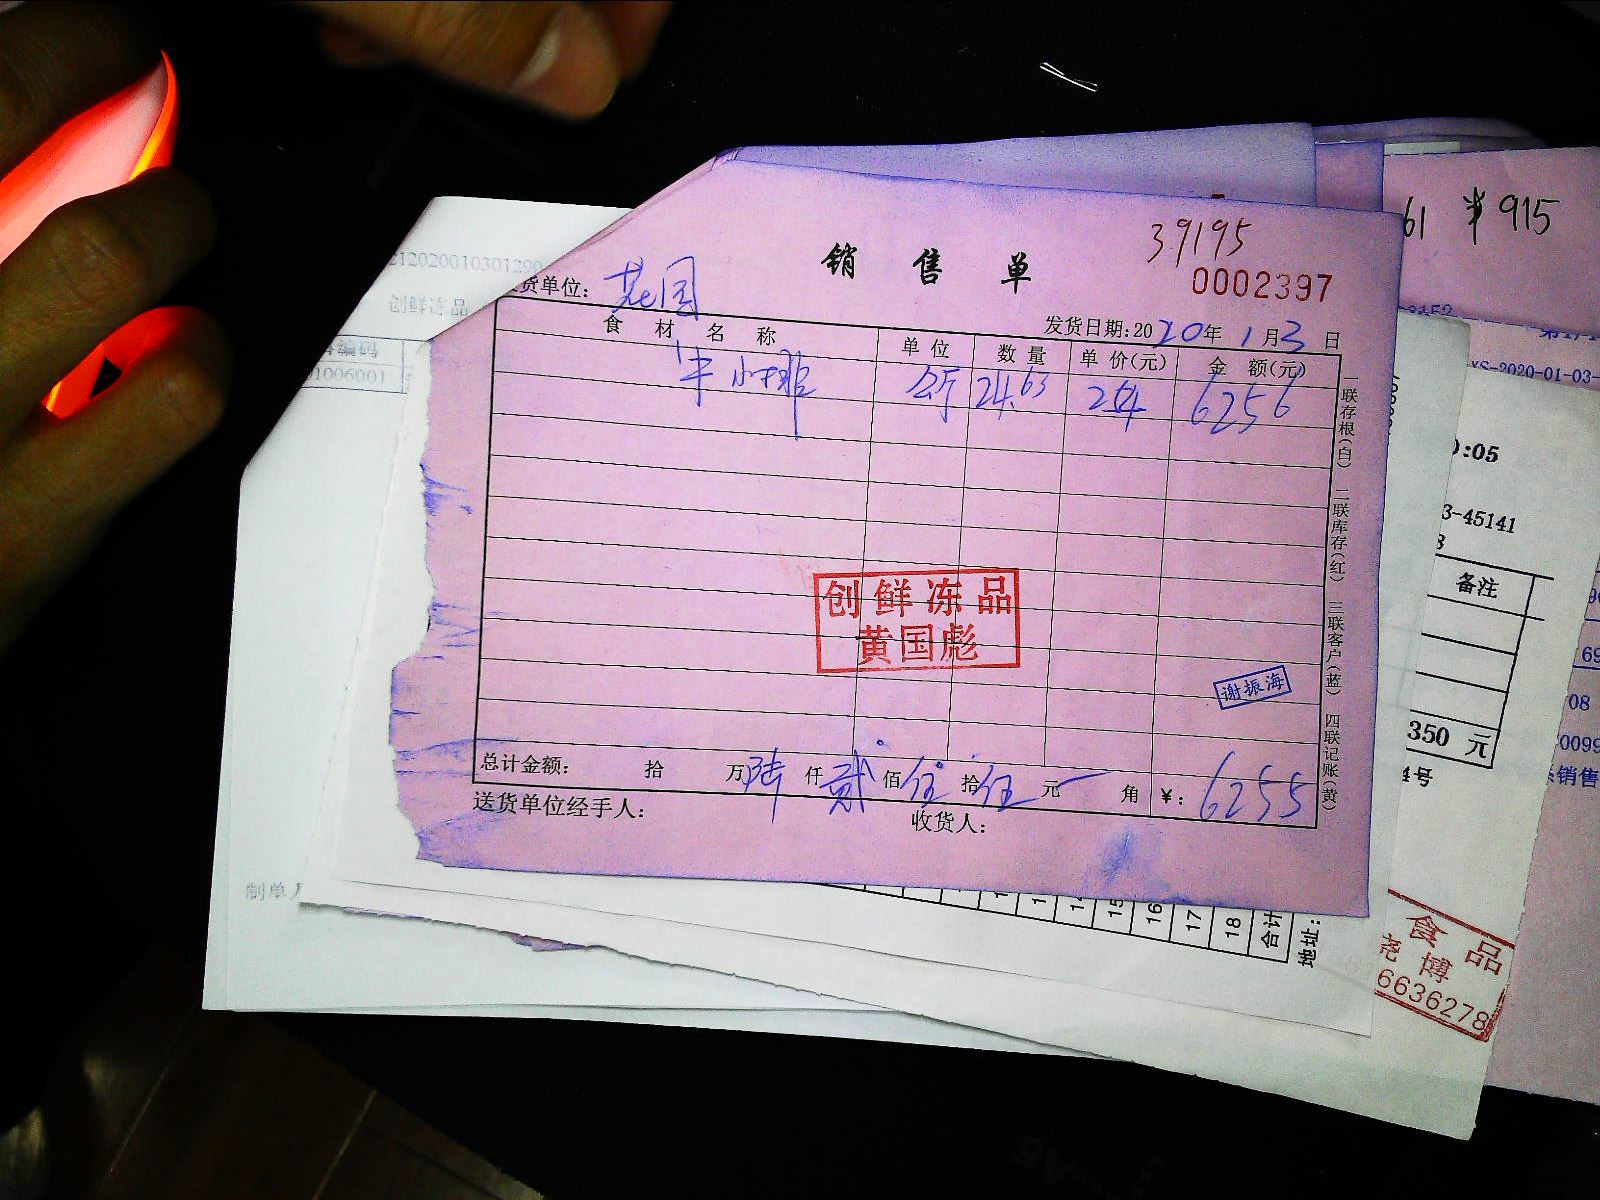 39195
销售单
0002397
货单位：花园
发货日期:2020年1月3日
食材名称 单位 数量 单价(元) 金额(元)
牛小排 公斤 24.63 254 6256
一联存根(白) 二联库存(红) 三联客户(蓝) 四联记账(黄)
创鲜冻品
黄国彪
谢振海
总计金额： 拾 万陆仟贰佰伍拾伍元 角 ¥：6255
送货单位经手人： 收货人：
61 ¥915
212020010301290
创鲜冻品
编码
01006001
制单人
XS-2020-01-03-
:05
3-45141
8
备注
350 元
4号
08
0099
销售
14 15 16 17 18 合计
地址：
食品
尧博
6636278